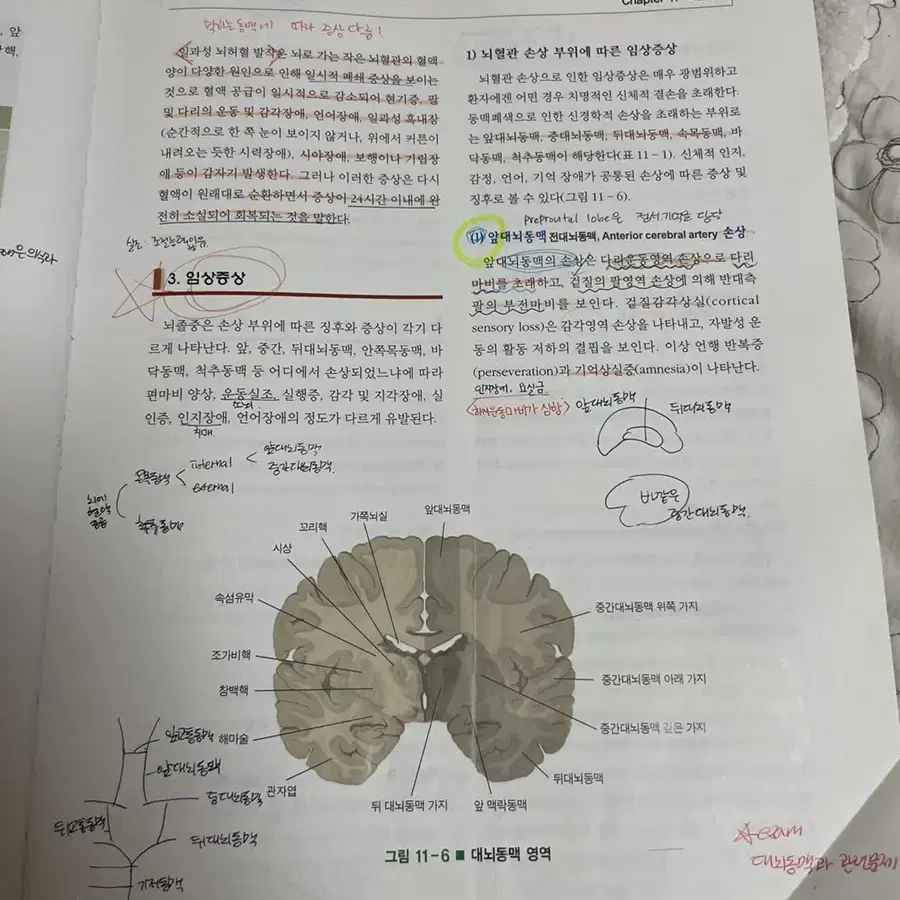 앞
막히는 동맥에 따라 증상 다름!
일과성 뇌허혈 발작은 뇌로 가는 작은 뇌혈관의 혈액
양이 다양한 원인으로 인해 일시적 폐쇄 증상을 보이는
것으로 혈액 공급이 일시적으로 감소되어 현기증, 팔
및 다리의 운동 및 감각장애, 언어장애, 일과성 흑내장
(순간적으로 한 쪽 눈이 보이지 않거나, 위에서 커튼이
내려오는 듯한 시력장애), 시야장애, 보행이나 기립장
애 등이 갑자기 발생한다. 그러나 이러한 증상은 다시
혈액이 원래대로 순환하면서 증상이 24시간 이내에 완
전히 소실되어 회복되는 것을 말한다.
실조: 조절능력없음
3. 임상증상
뇌졸중은 손상 부위에 따른 징후와 증상이 각기 다
르게 나타난다. 앞, 중간, 뒤대뇌동맥, 안쪽목동맥, 바
닥동맥, 척추동맥 등 어디에서 손상되었느냐에 따라
편마비 양상, 운동실조, 실행증, 감각 및 지각장애, 실
인증, 인지장애, 언어장애의 정도가 다르게 유발된다.
치매
internal
앞대뇌동맥
중간대뇌동맥
온목동맥
external
뇌에
혈액
공급
척추동맥
Chapter
1) 뇌혈관 손상 부위에 따른 임상증상
뇌혈관 손상으로 인한 임상증상은 매우 광범위하고
환자에겐 어떤 경우 치명적인 신체적 결손을 초래한다.
동맥폐색으로 인한 신경학적 손상을 초래하는 부위로
는 앞대뇌동맥, 중대뇌동맥, 뒤대뇌동맥, 속목동맥, 바
닥동맥, 척추동맥이 해당한다(표 11-1). 신체적 인지,
감정, 언어, 기억 장애가 공통된 손상에 따른 증상 및
징후로 볼 수 있다(그림 11-6).
lobe은 정서기억을 담당
(1) 앞대뇌동맥 전대뇌동맥, Anterior cerebral artery 손상
앞대뇌동맥의 손상은 다리운동영역 손상으로 다리
마비를 초래하고, 겉질의 팔영역 손상에 의해 반대측
팔의 부전마비를 보인다. 겉질감각상실(cortical
sensory loss)은 감각영역 손상을 나타내고, 자발성 운
동의 활동 저하의 결핍을 보인다. 이상 언행 반복증
(perseveration)과 기억상실증(amnesia)이 나타난다.
인지장애, 요실금
운동마비가 심함
앞대뇌동맥
뒤대뇌동맥
바깥은
중간대뇌동맥.
앞대뇌동맥
가쪽뇌실
꼬리핵
시상
속섬유막
조가비핵
창백핵
해마술
관자엽
중간대뇌동맥 위쪽 가지
중간대뇌동맥 아래 가지
중간대뇌동맥 깊은 가지
뒤대뇌동맥
뒤 대뇌동맥 가지
앞 맥락동맥
앞교통동맥
앞대뇌동맥
중대뇌동맥
뒤교통동맥
뒤대뇌동맥
기저동맥
그림 11-6 ■ 대뇌동맥 영역
exam
대뇌동맥과 관련문제